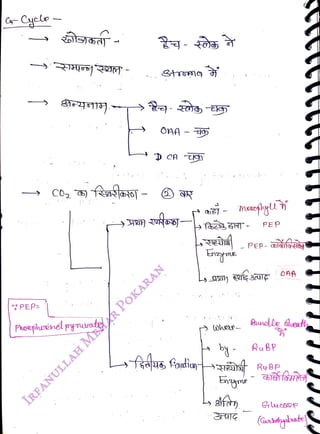 C₄ Cycle -
→ खोजकर्ता - हैच - स्लेक ने
→ सम्पन्न स्थल - stroma में
→ अन्यनाम → हैच - स्लेक चक्र
→ OAA - चक्र
→ DCA - चक्र
→ CO₂ का स्थिरीकरण - ② बार
→ प्रथम स्थरीकरण
→ कहाँ - mesophyll में
→ किसके द्वारा - PEP
→ सहयोगी Enzyme - PEP - कार्बोक्सिलेज
→ प्रथम स्थाई उत्पाद OAA
∵ PEP =
Phosphoenol pyruvate
→ द्वितीयक Fixation
→ where - Bundle Sheath में
→ by - RuBP
→ सहयोगी Enzyme - RuBP कार्बोक्सिलेज
→ अंतिम उत्पाद - Glucose (Carbohydrate)
IRFANULLAH MEHAR POKARAN